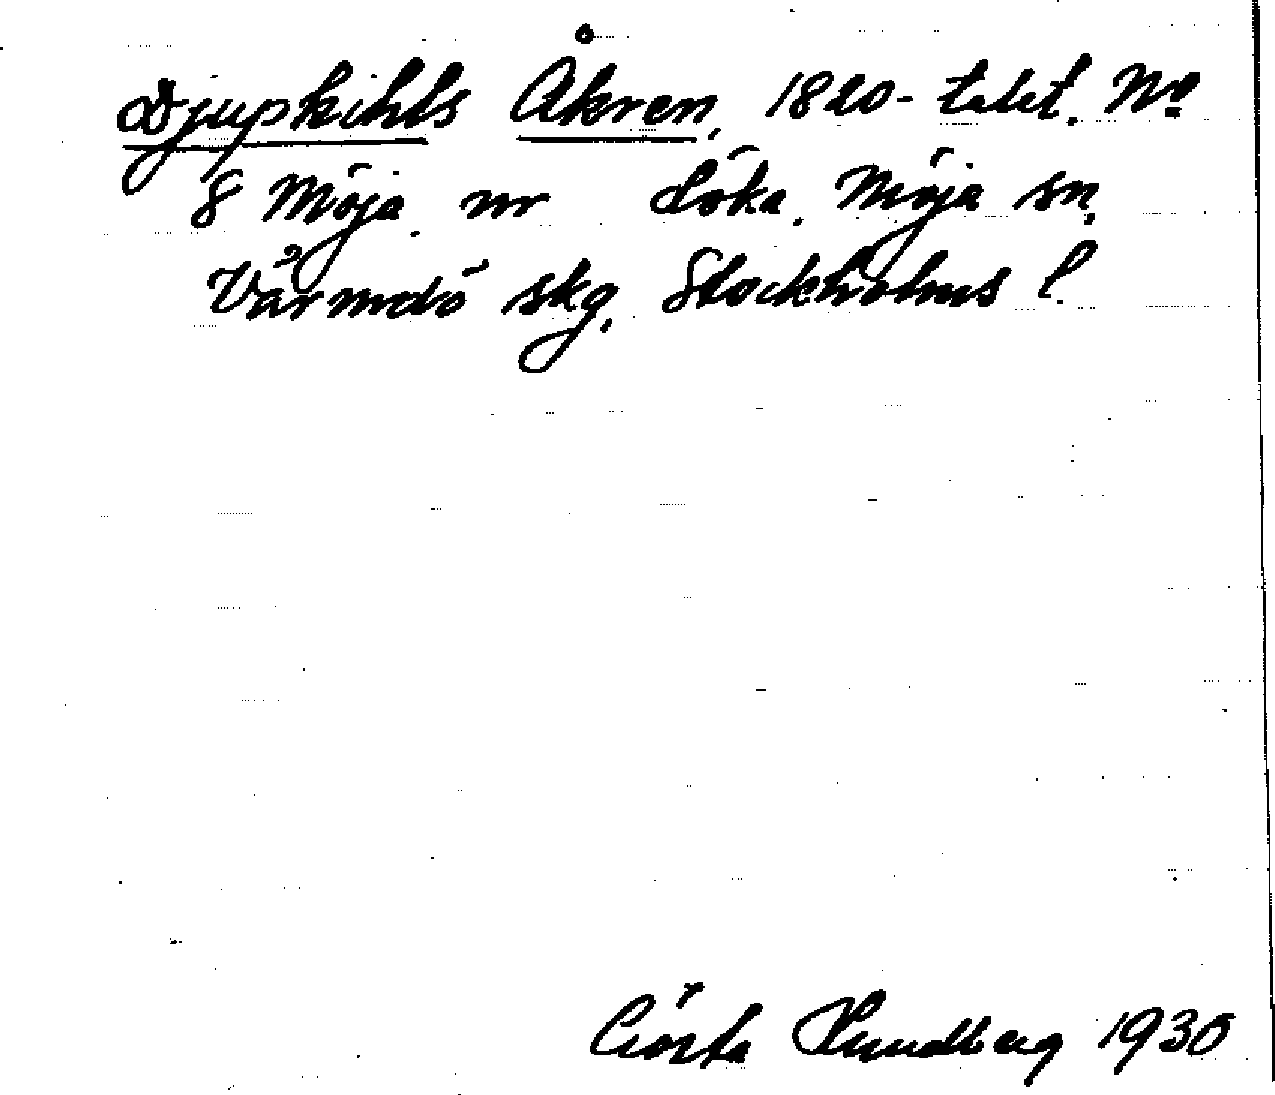 Djupkihls Åkren, 1820-talet. Nº
8 Möja. nr Löka. Möja sn,
Värmdö skg, Stockholms l.
Gösta Lundberg 1930